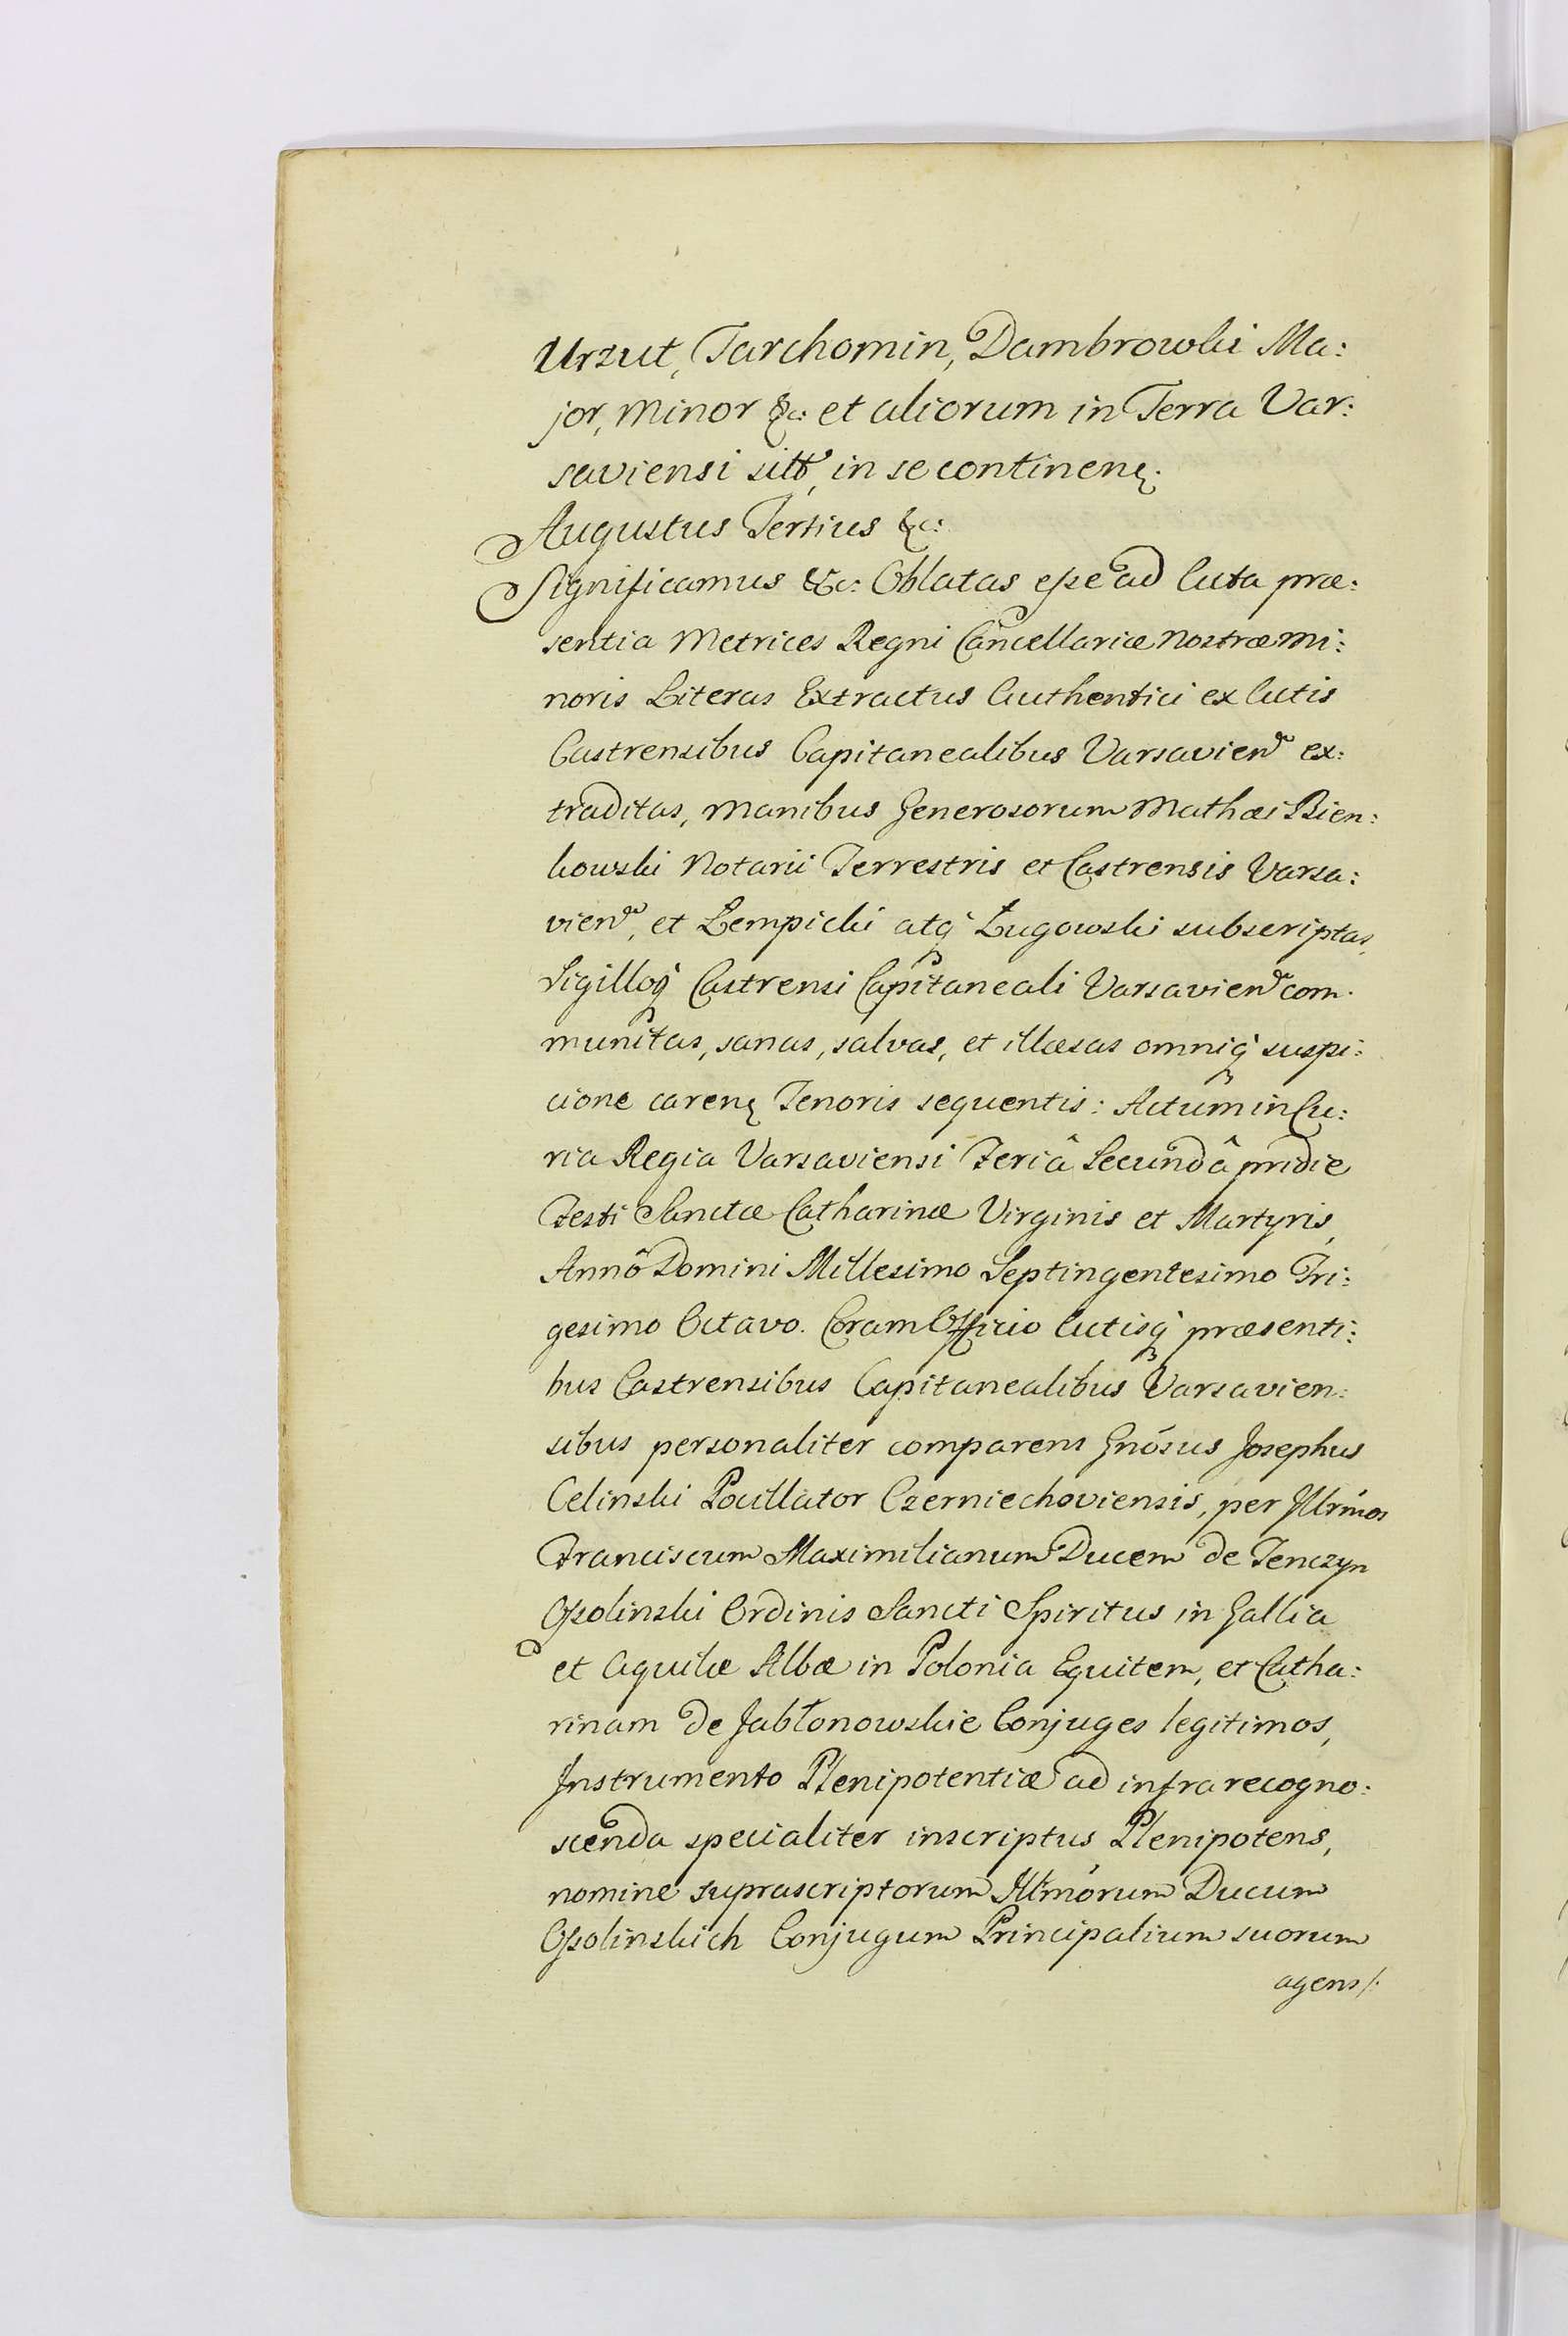 Urzut, Tarchomin, Dambrowki Ma:
jor, Minor &c: et aliorum in Terra Var:
saviensi sitt, in se continen.
Augustus Tertius &c:
Significamus &c: Oblatas esse ad Acta præ:
sentia Metrices Regni Cancellariæ Nostræ Mi:
noris Literas Extractus Authentici ex Actis
Castrensibus Capitanealibus Varsavien ex:
traditas, Manibus Generosorum Mathæi Bien:
kowski Notarii Terrestris et Castrensis Varsa:
vien, et Łempicki atq Ługowski subscriptas,
Sigilloq Castrensi Capitaneali Varsavien com.
munitas, sanas, salvas, et illæsas omniq suspi:
cione caren Tenoris sequentis: Actum in Cu:
ria Regia Varsaviensi Feriâ Secundâ pridie
Festi Sanctæ Catharinæ Virginis et Martyris,
Annô Domini Millesimo Septingentesimo Tri:
gesimo Octavo. Coram Officio Actisq præsenti:
bus Castrensibus Capitanealibus Varsavien:
sibus personaliter comparens Gnósus Josephus
Celinski Pocillator Czerniechoviensis, per Illrmos
Franciscum Maximilianum Ducem de Tenczyn
Ossolinski Ordinis Sancti Spiritus in Gallia
et Aquilæ Albæ in Polonia Equitem, et Catha:
rinam de Jabłonowskie Conjuges legitimos,
Instrumento Plenipotentiæ ad infra recogno:
scenda specialiter inscriptus Plenipotens,
nomine suprascriptorum Illmórum Ducum
Ossolinskich Conjugum Principalium suorum
agens/: